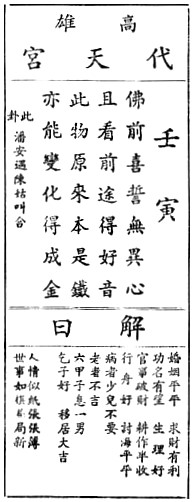 高雄
代天宮
壬寅
佛前喜誓無異心
且看前途得好音
此物原來本是鐵
亦能變化得成金
此卦
潘安遇陳姑叫合
解曰
婚姻平平 求財有利
功名有望 生理好
官事破財 耕作半收
行舟好 討海平平
病者少兒不要
老者不吉
六甲子息一男
乞子好 移居大吉
人情似紙張張薄
世事如棋局局新